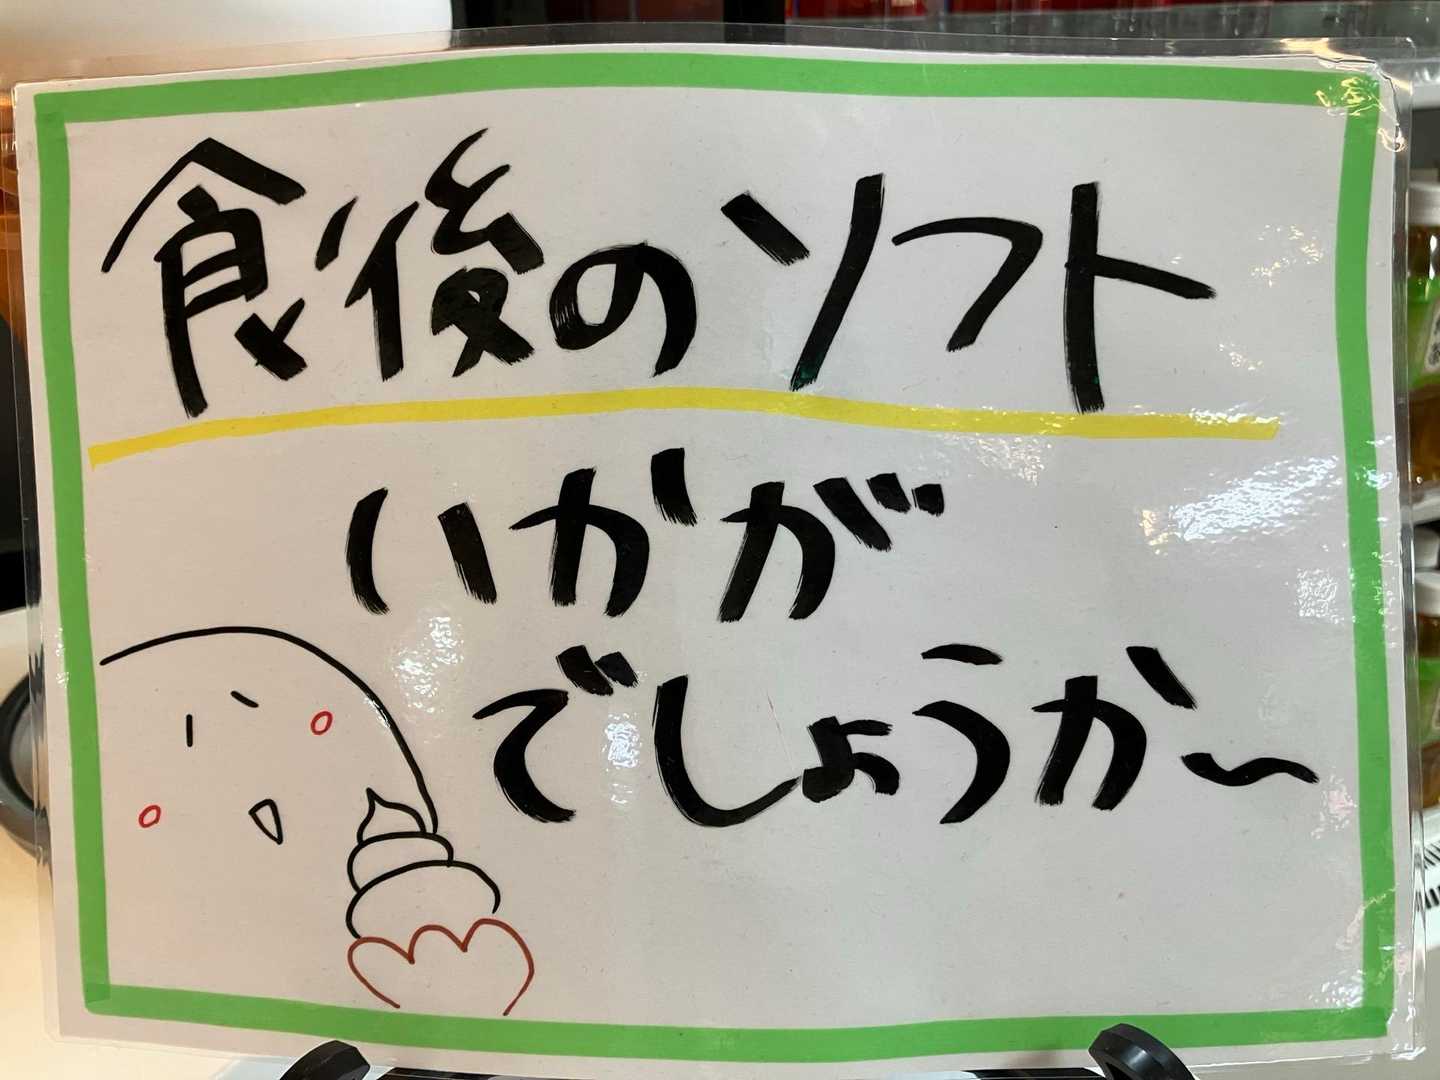 食後のソフト
いかが
でしょうか〜